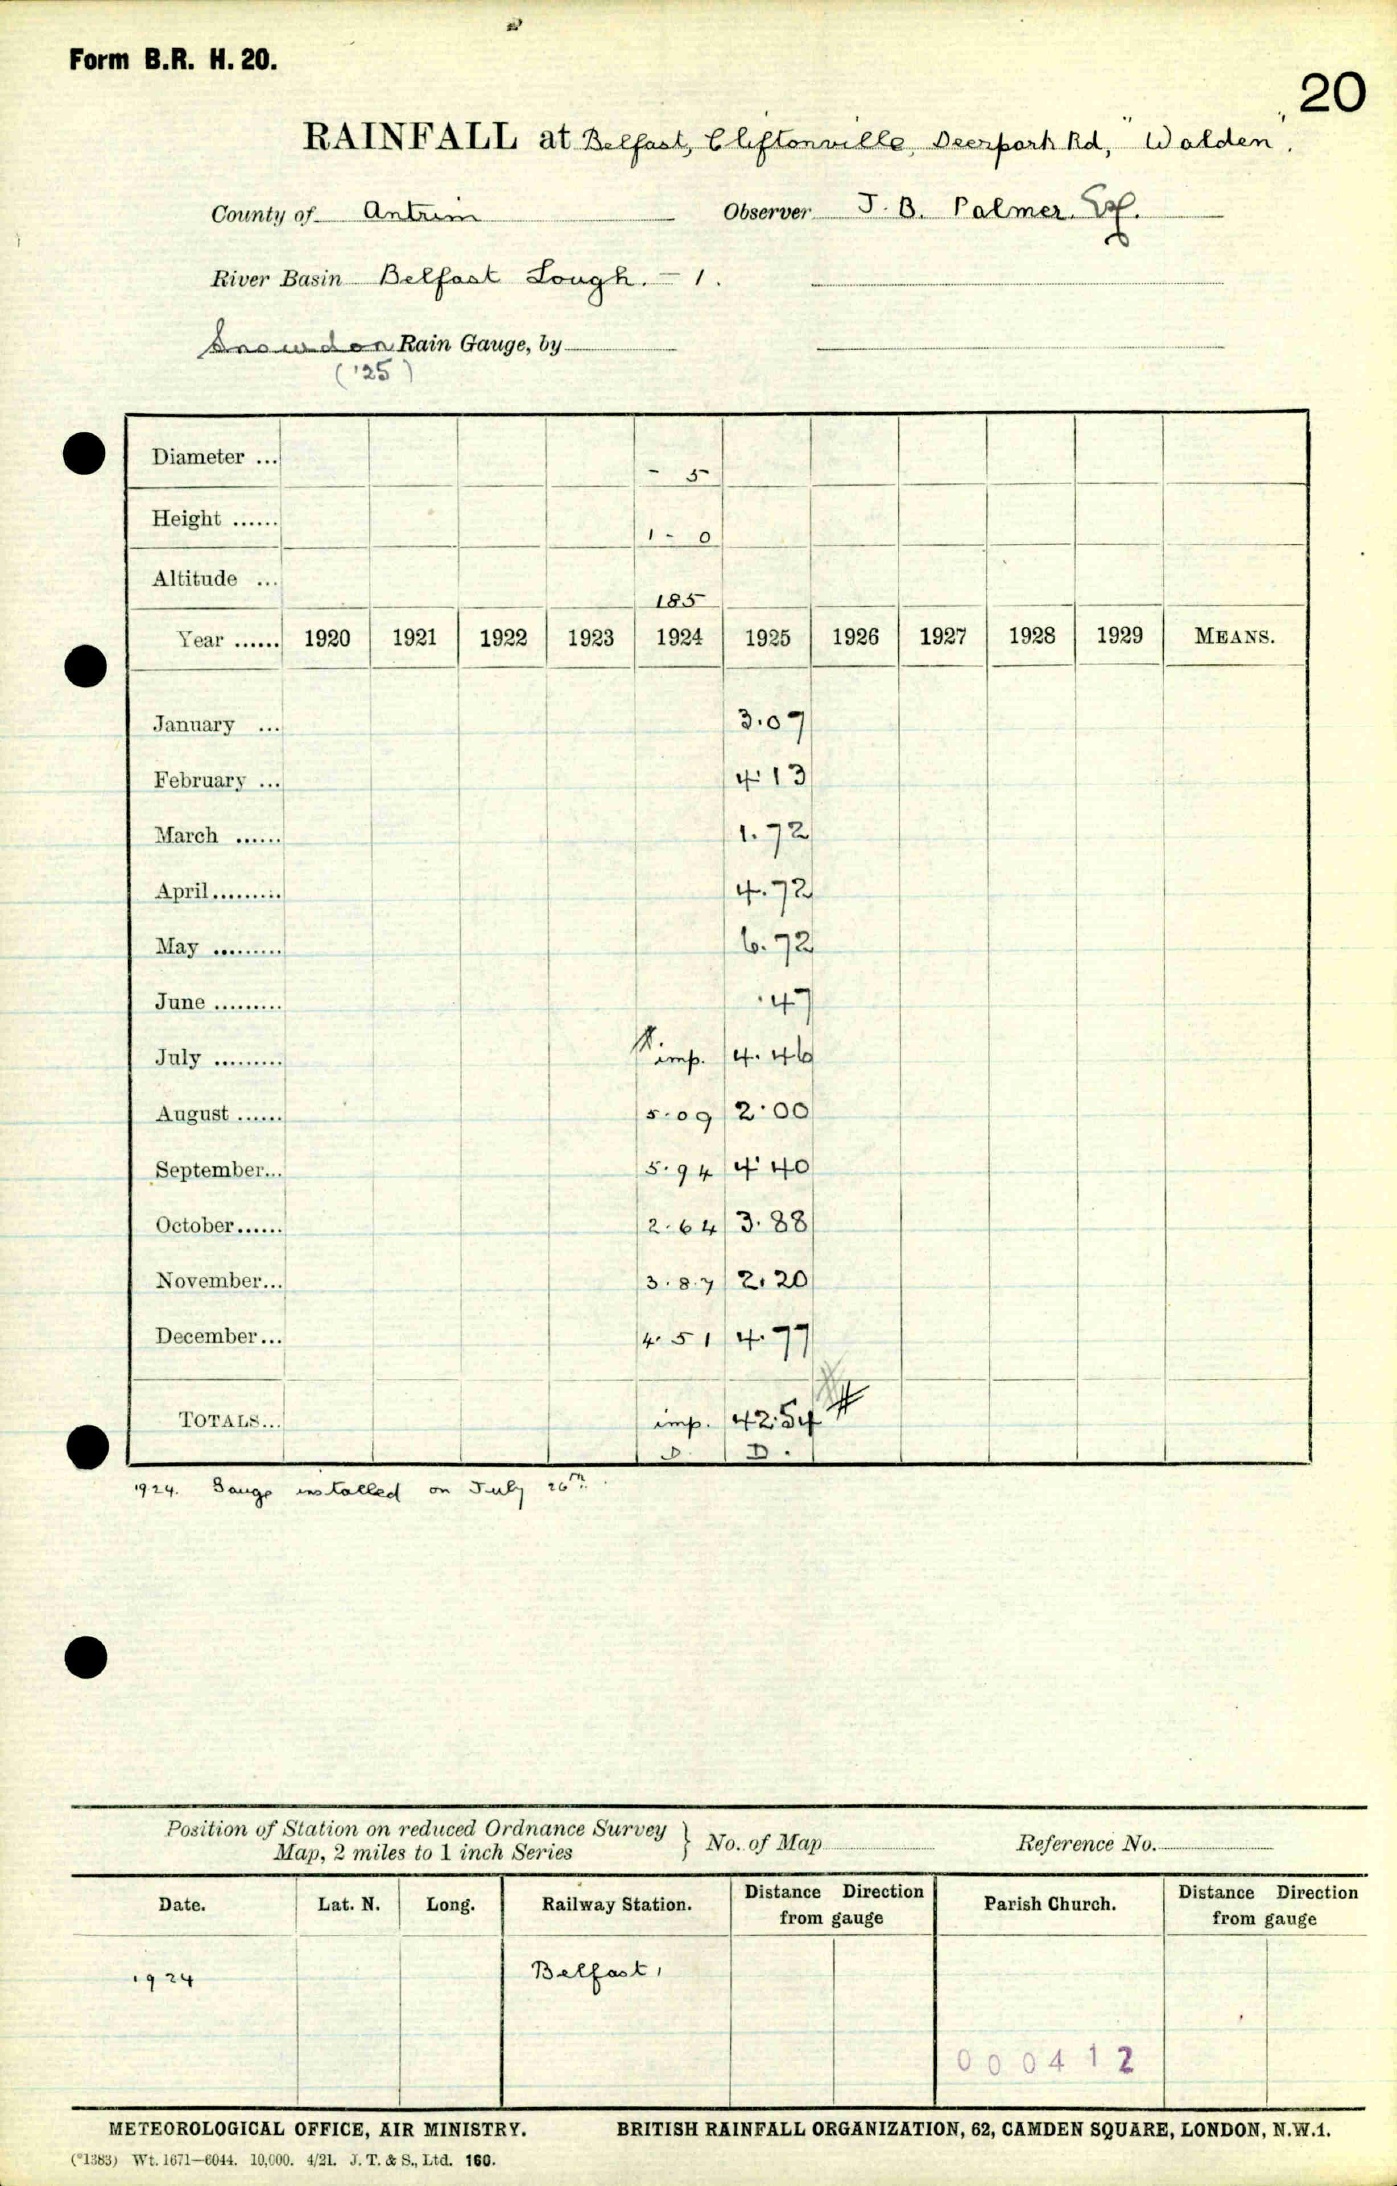 Form B.R. H. 20.
20
RAINFALL at Belfast, Cliftonville, Deerpark Rd, "Walden".
County of Antrim Observer J. B. Palmer Esq.
River Basin Belfast Lough. – 1.
Snowdon Rain Gauge, by
('25)
Diameter ... - 5
Height ...... 1 - 0
Altitude ... 185
Year ...... 1920 1921 1922 1923 1924 1925 1926 1927 1928 1929 MEANS.
January ... 3.07
February ... 4.13
March ...... 1.72
April......... 4.72
May ......... 6.72
June ......... .47
July ......... imp. 4.46
August ...... 5.09 2.00
September... 5.94 4.40
October...... 2.64 3.88
November... 3.87 2.20
December... 4.51 4.77
TOTALS... imp. 42.54 #
D. D.
1924. Gauge installed on July 26th.
Position of Station on reduced Ordnance Survey
Map, 2 miles to 1 inch Series } No. of Map Reference No.
Date. Lat. N. Long. Railway Station. Distance Direction from gauge Parish Church. Distance Direction from gauge
1924 Belfast,
000412
METEOROLOGICAL OFFICE, AIR MINISTRY. BRITISH RAINFALL ORGANIZATION, 62, CAMDEN SQUARE, LONDON, N.W.1.
(*1383) Wt. 1671—6044. 10,000. 4/21. J. T. & S., Ltd. 160.